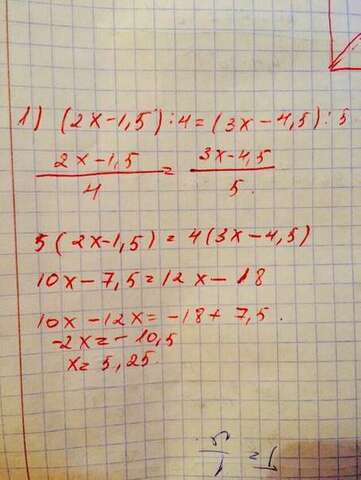 1) (2x-1,5):4=(3x-4,5):5
2x-1,5 / 4 = 3x-4,5 / 5
5(2x-1,5)=4(3x-4,5)
10x-7,5=12x-18
10x-12x=-18+7,5.
-2x=-10,5
x=5,25